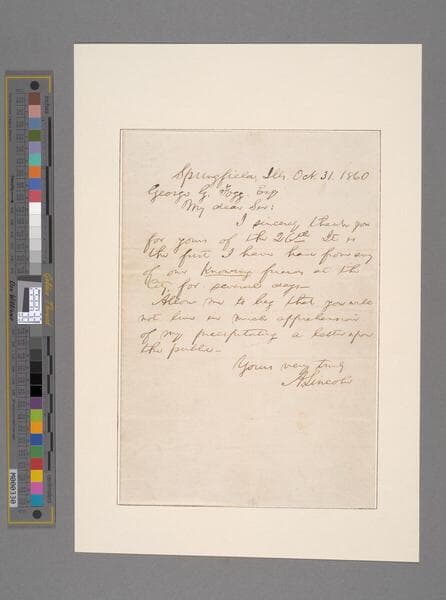 Springfield, Ills. Oct. 31. 1860
George G. Fogg, Esq
My dear Sir:
I sincerely thank you
for yours of the 26th. It is
the first I have have from any
of our knowing friends at the
City, for several days.
Allow me to beg that you will
not live in much apprehension
of my precipitating a letter upon
the public.
Yours very truly
A. Lincoln
M000330